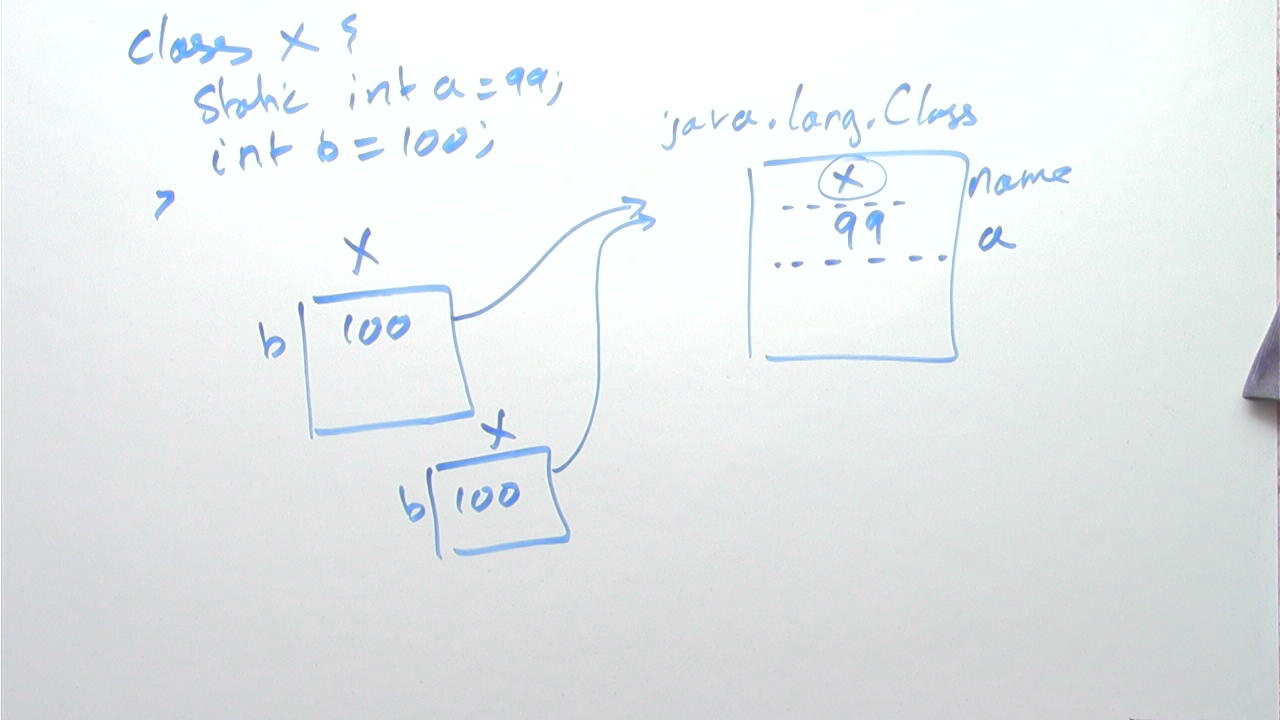 class X {
static int a = 99;
int b = 100;
}
java.lang.Class
X name
99 a
X
b 100
X
b 100